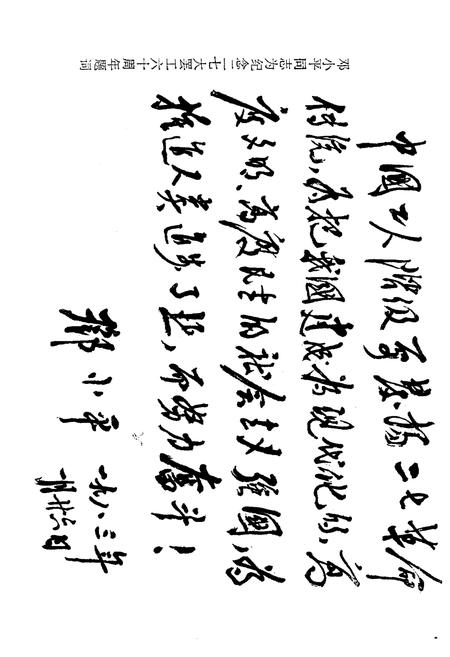 邓小平同志为纪念二七大罢工六十周年题词
中國工人階级要發揚二七革命
传统，为把我國建成为现代化的、高
度文明、高度民主的社会主义强國，为
推进人类进步事业，而努力奮斗！
鄧小平 一九八三年
一月廿六日